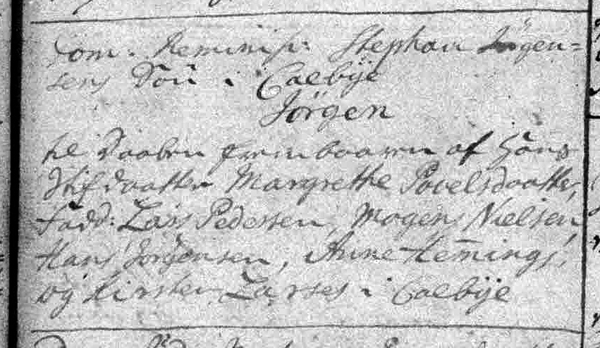 Dom: Reminisc: Stephan Jörgen=
sens Sön i Caebÿe
Jörgen
til Daaben frembaaren af Hans
Stifdaatter Margrethe Povelsdaatter,
Fadd: Lars Pedersen, Mogens Nielsen,
Hans Jörgensen, Anne Hemings,
og Kirsten Larses i Caebÿe